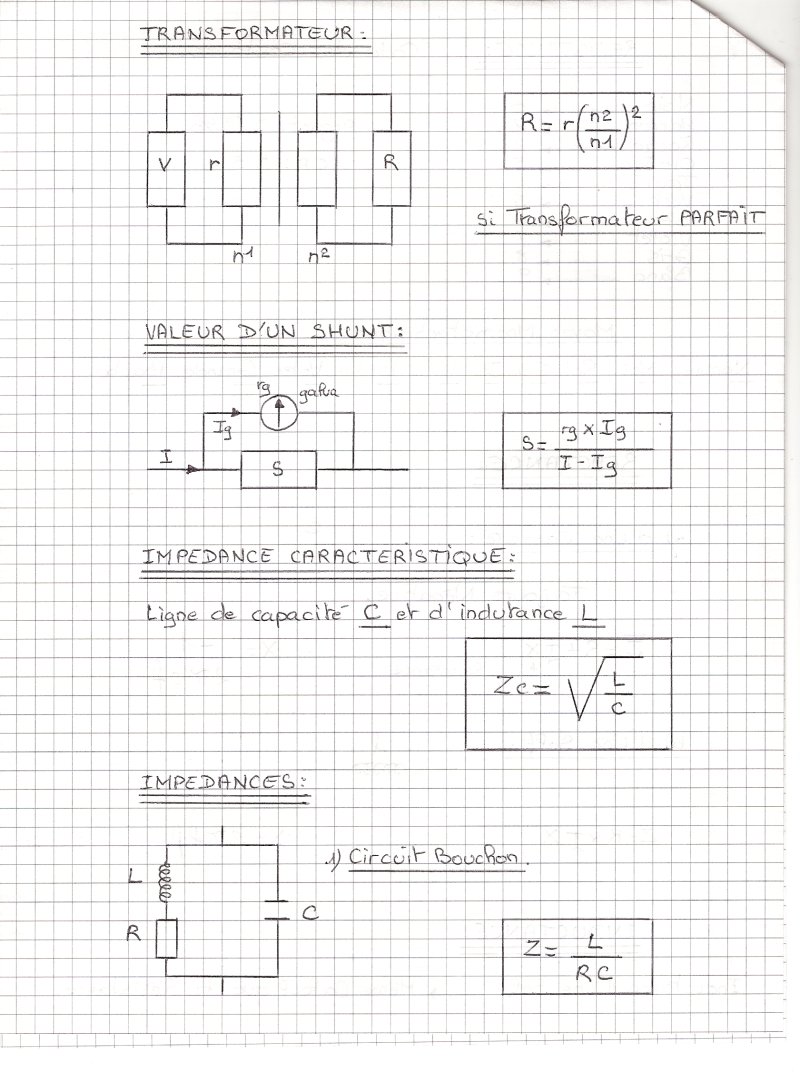 TRANSFORMATEUR:
V r R
n1 n2
R = r(n2/n1)²
si Transformateur PARFAIT
VALEUR D'UN SHUNT:
rg galva
Ig
I
S
S = rg x Ig / I - Ig
IMPEDANCE CARACTERISTIQUE:
Ligne de capacité C et d'indutance L
Zc = √L/C
IMPEDANCES:
1) Circuit Bouchon.
L
R
C
Z = L / RC